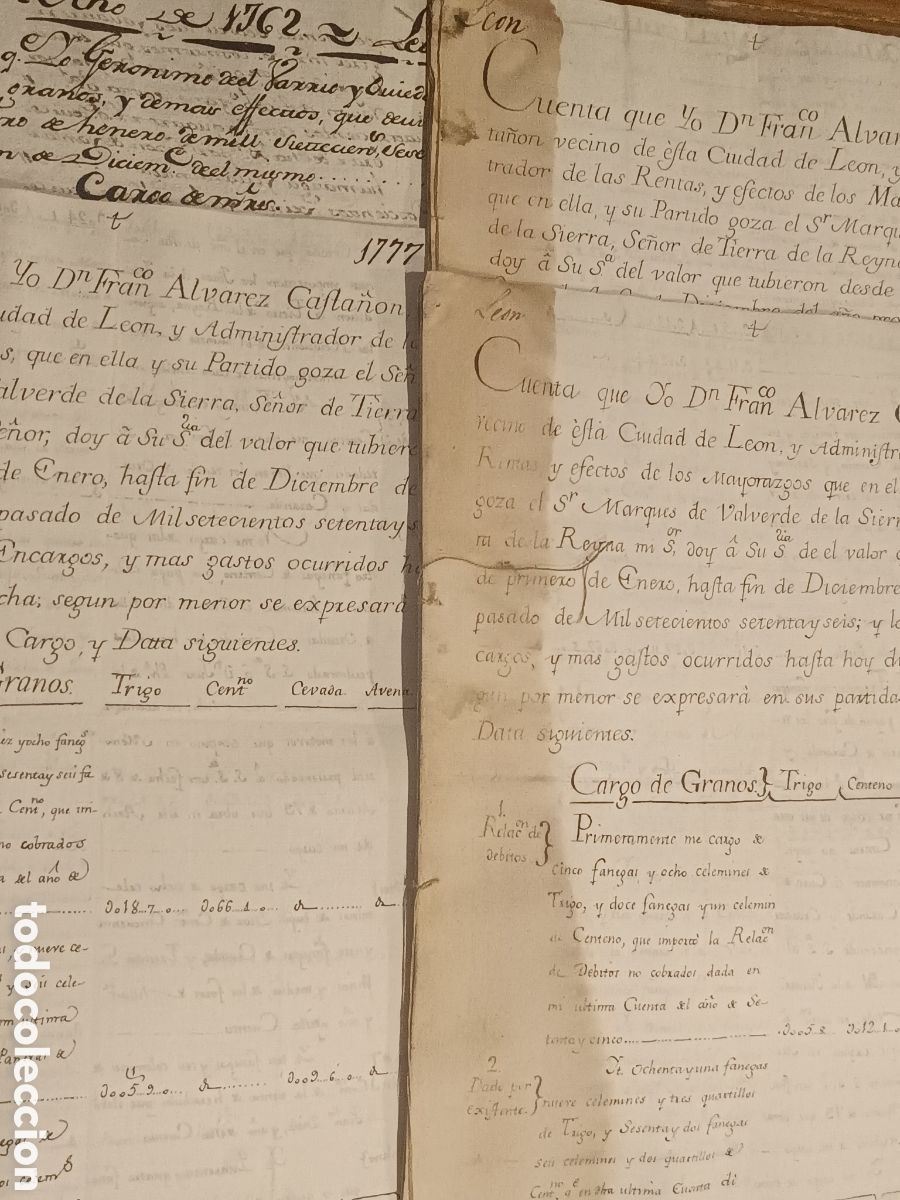 de 1762
q. Yo Geronimo del Varrio y
granos, y demas effectos, que
de henero de mill
de Diciem.e del mismo
Cargo de mrs.
1777
Yo Dn Fran.co Alvarez Castañon
udad de Leon, y Administrador de
s, que en ella y su Partido goza el Señ
alverde de la Sierra, Señor de Tierra
eñor, doy â Su S.ria del valor que tubiere
de Enero, hasta fin de Diciembre de
pasado de Mil setecientos setenta y s
Encargos, y mas gastos ocurridos h
cha; segun por menor se expresarà
Cargo, y Data siguientes.
Granos. Trigo Cent.no Cevada Avena
iez y ocho faneg.s
sesenta y seis fa
Cent.no, que im-
no cobrados
del año de
18 7 66 1
nueve ce-
y seis cele-
ultima
5 9 9 6
Leon
Cuenta que Yo Dn Fran.co Alvar
tañon vecino de èsta Ciudad de Leon, y
trador de las Rentas, y efectos de los Ma
que en ella, y su Partido goza el Sr Marqu
de la Sierra, Señor de Tierra de la Reyna
doy â Su S.a del valor que tubieron desde
Leon
Cuenta que Yo Dn Fran.co Alvarez C
vecino de èsta Ciudad de Leon, y Administra
Rentas y efectos de los Mayorazgos que en el
goza el Sr Marques de Valverde de la Sierr
ra de la Reyna mi S.or, doy â Su S.ria de el valor
de primero de Enero, hasta fin de Diciembre
pasado de Mil setecientos setenta y seis; y lo
cargos, y mas gastos ocurridos hasta hoy di
gun por menor se expresarà en sus partida
Data siguientes.
Cargo de Granos. Trigo Centeno
1.
Relac.en de
debitos.
Primeramente me cargo de
cinco fanegas y ocho celemines de
Trigo, y doce fanegas y un celemin
de Centeno, que importò la Relac.en
de Debitos no cobrados dada en
mi ultima Cuenta del año de Se-
tenta y cinco 5 8 12 1
2.
Dado por
existente.
Yt. Ochenta y una fanegas
nueve celemines y tres quartillos
de Trigo, y Sesenta y dos fanegas
seis celemines y dos quartillos de
Cent.no q.e en dha ultima Cuenta di
todocoleccion